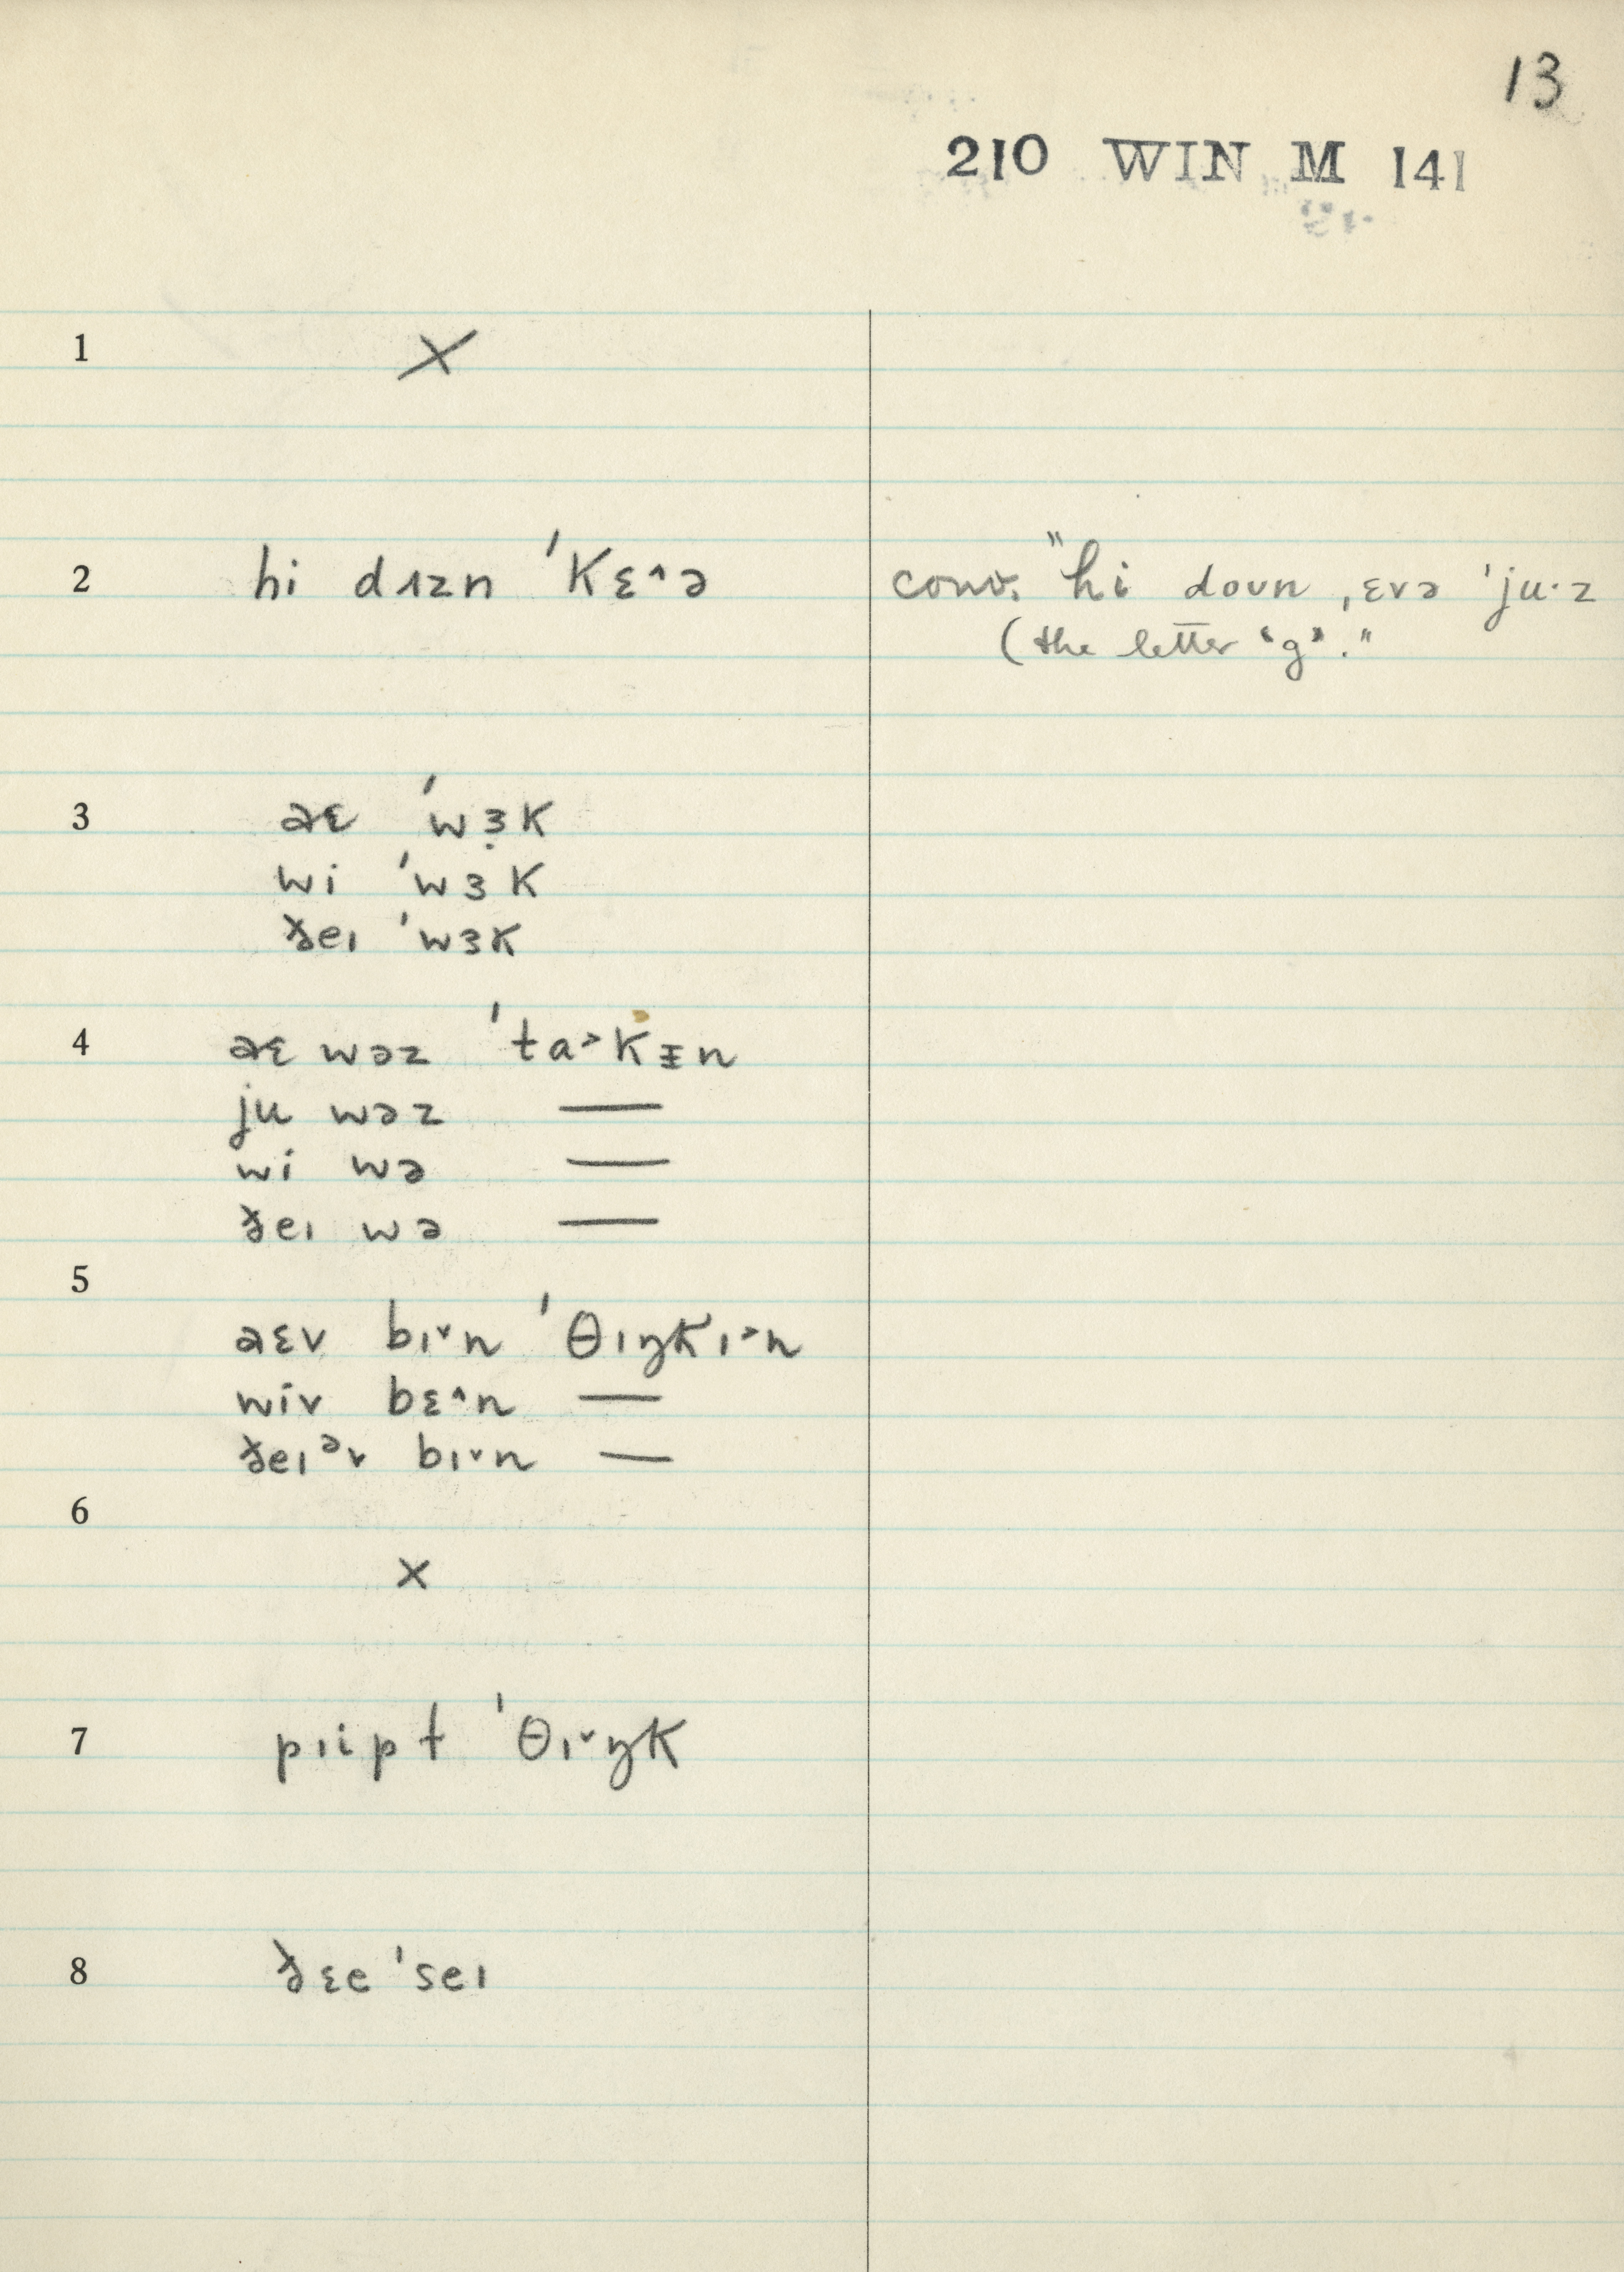 13
210 WIN M 141
1 ×
2 hi dɪzn ˈkɛ˄ə conv. "hi doʊn ˌɛvə ˈju·z
(the letter "g"."
3 aɛ ˈwɜ̣k
wi ˈwɜk
ðeɪ ˈwɜk
4 aɛ wəz ˈta˃kɪ̵n
ju wəz —
wi wə —
ðeɪ wə —
5
aɛv bɪ˅n ˈθɪŋkɪ˃n
wiv bɛ˄n —
ðeɪᵊv bɪ˅n —
6
×
7 pɪipɫ ˈθɪ˅ŋk
8 ðɛe ˈseɪ